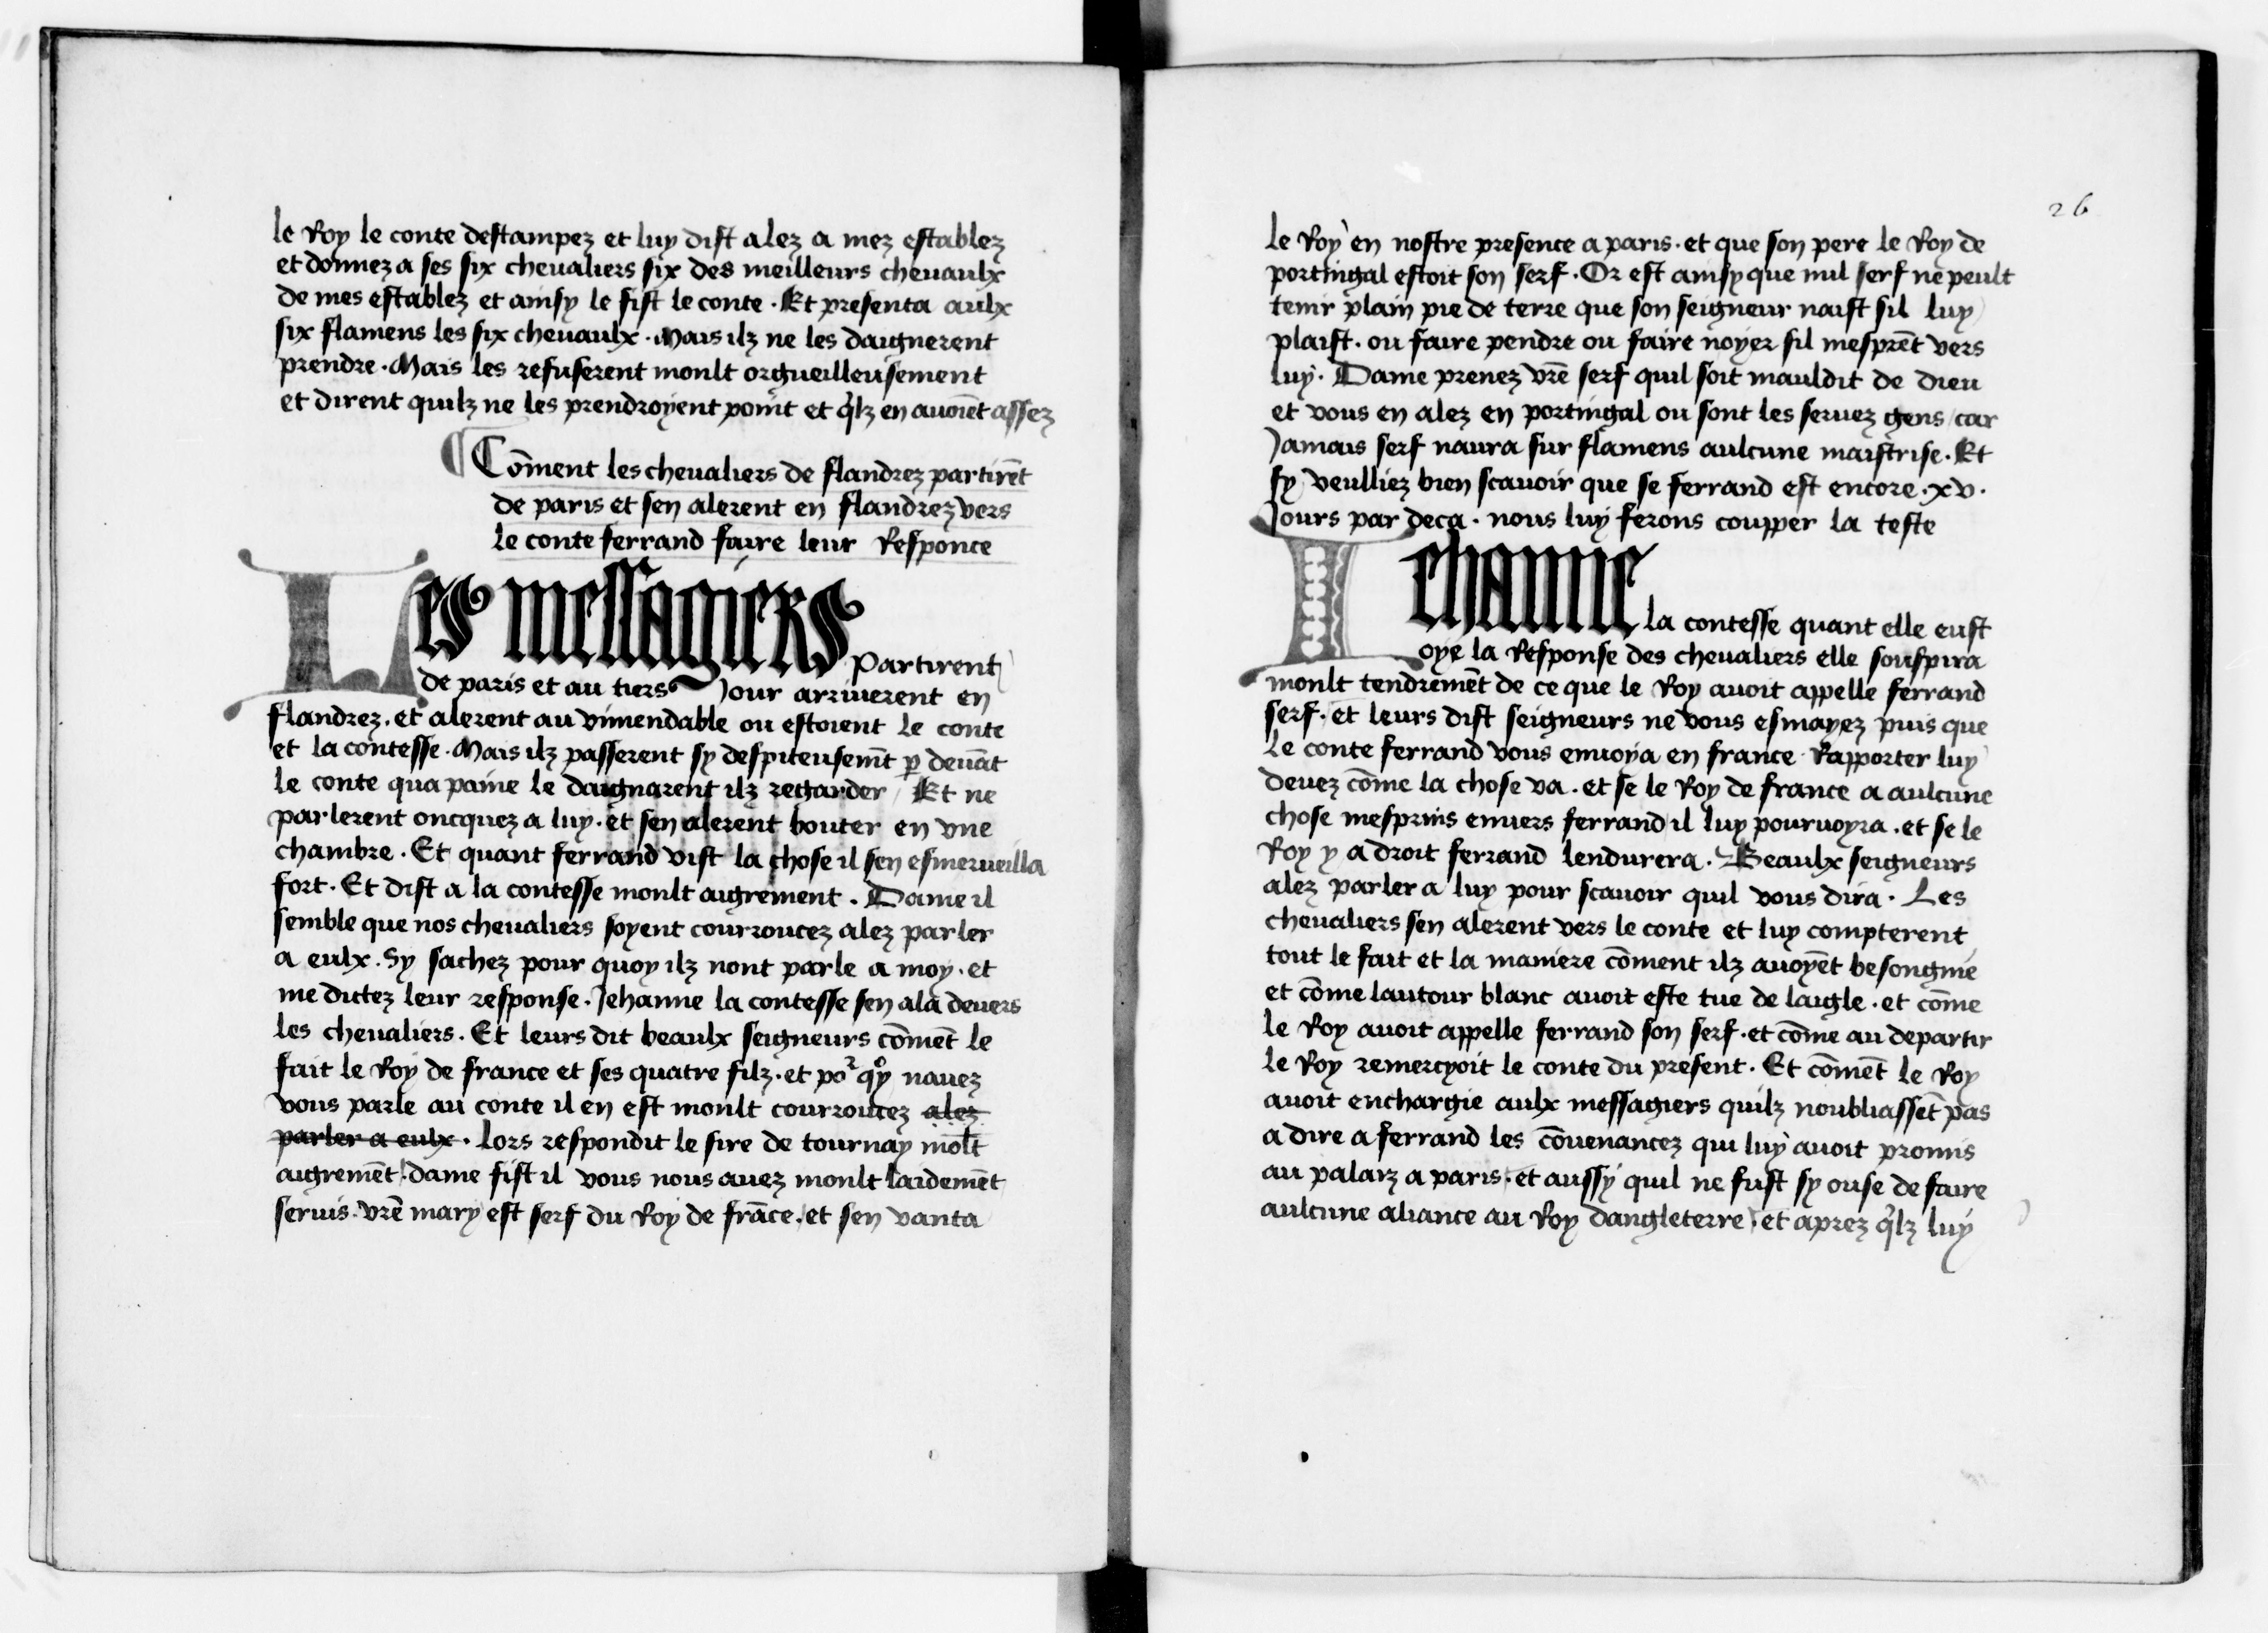 le Roy le conte destampez et luy dist alez a mez establez
et donnez a ses six cheualiers six des meilleurs cheuaulx
de mes establez et ainsy le fist le conte . Et presenta aulx
six flamens les six cheuaulx . Mais ilz ne les daignerent
prendre . Mais les refuserent moult orgueilleusement
et dirent quilz ne les prendroyent point et qĩlz en auoiẽt assez
¶ Cõment les cheualiers de flandrez partirẽt
de paris et sen alerent en flandrez vers
le conte ferrand faire leur Responce
Les messagiers partirent
de paris et au tiers Jour arriuerent en
flandrez . et alerent au vimendable ou estoient le conte
et la contesse . Mais ilz passerent sy despiteusemẽt ꝑ deuãt
le conte qua paine le daignarent ilz regarder / Et ne
parlerent oncquez a luy . et sen alerent bouter en vne
chambre . Et quant ferrand vist la chose il sen esmerueilla
fort . Et dist a la contesse moult aigrement . Dame il
semble que nos cheualiers soyent courroucez alez parler
a eulx . Sy sachez pour quoy ilz nont parle a moy . et
me dictez leur response . Jehanne la contesse sen ala deuers
les cheualiers . Et leurs dit beaulx seigneurs cõmẽt le
fait le Roy de france et ses quatre filz . et poʳ qͦy nauez
vous parle au conte il en est moult courroucez alez
parler a eulx . Lors respondit le sire de tournay moĩt
aigremẽt . dame fist il vous nous auez moult laidemẽt
seruis . vrẽ mary est serf du Roy de frãce . et sen vanta
26
le Roy en nostre presence a paris . et que son pere le Roy de
portingal estoit son serf . Or est ainsy que nul serf ne peult
tenir plain pie de terre que son seigneur naist sil luy
plaist . ou faire pendre ou faire noyer sil mesprẽt vers
luy . Dame prenez vrẽ serf quil soit mauldit de dieu
et vous en alez en portingal ou sont les seruez gens / car
Jamais serf naura sur flamens aulcune maistrise . Et
sy veulliez bien scauoir que se ferrand est encore . xv .
Jours par deca . nous luy ferons coupper la teste
Iehanne la contesse quant elle eust
oye la Response des cheualiers elle souspira
moult tendremẽt de ce que le Roy auoit appelle ferrand
serf . et leurs dist seigneurs ne vous esmayez puis que
le conte ferrand vous enuoya en france Rapporter luy
deuez cõme la chose va . et se le Roy de france a aulcune
chose mesprins enuers ferrand il luy pouruoyra . et se le
Roy y a droit ferrand lendurera . Beaulx seigneurs
alez parler a luy pour scauoir quil vous dira . Les
cheualiers sen alerent vers le conte et luy compterent
tout le fait et la maniere cõment ilz auoyẽt besongnie
et cõme lautour blanc auoit este tue de laigle . et cõme
le Roy auoit appelle ferrand son serf . et cõme au departir
le Roy remercyoit le conte du present . Et cõmẽt le Roy
auoit enchargie aulx messagiers quilz noubliassẽt pas
a dire a ferrand les cõuenancez qui luy auoit promis
au palaiz a paris . et aussy quil ne fust sy ouse de faire
aulcune aliance au Roy dangleterre . et aprez qĩlz luy